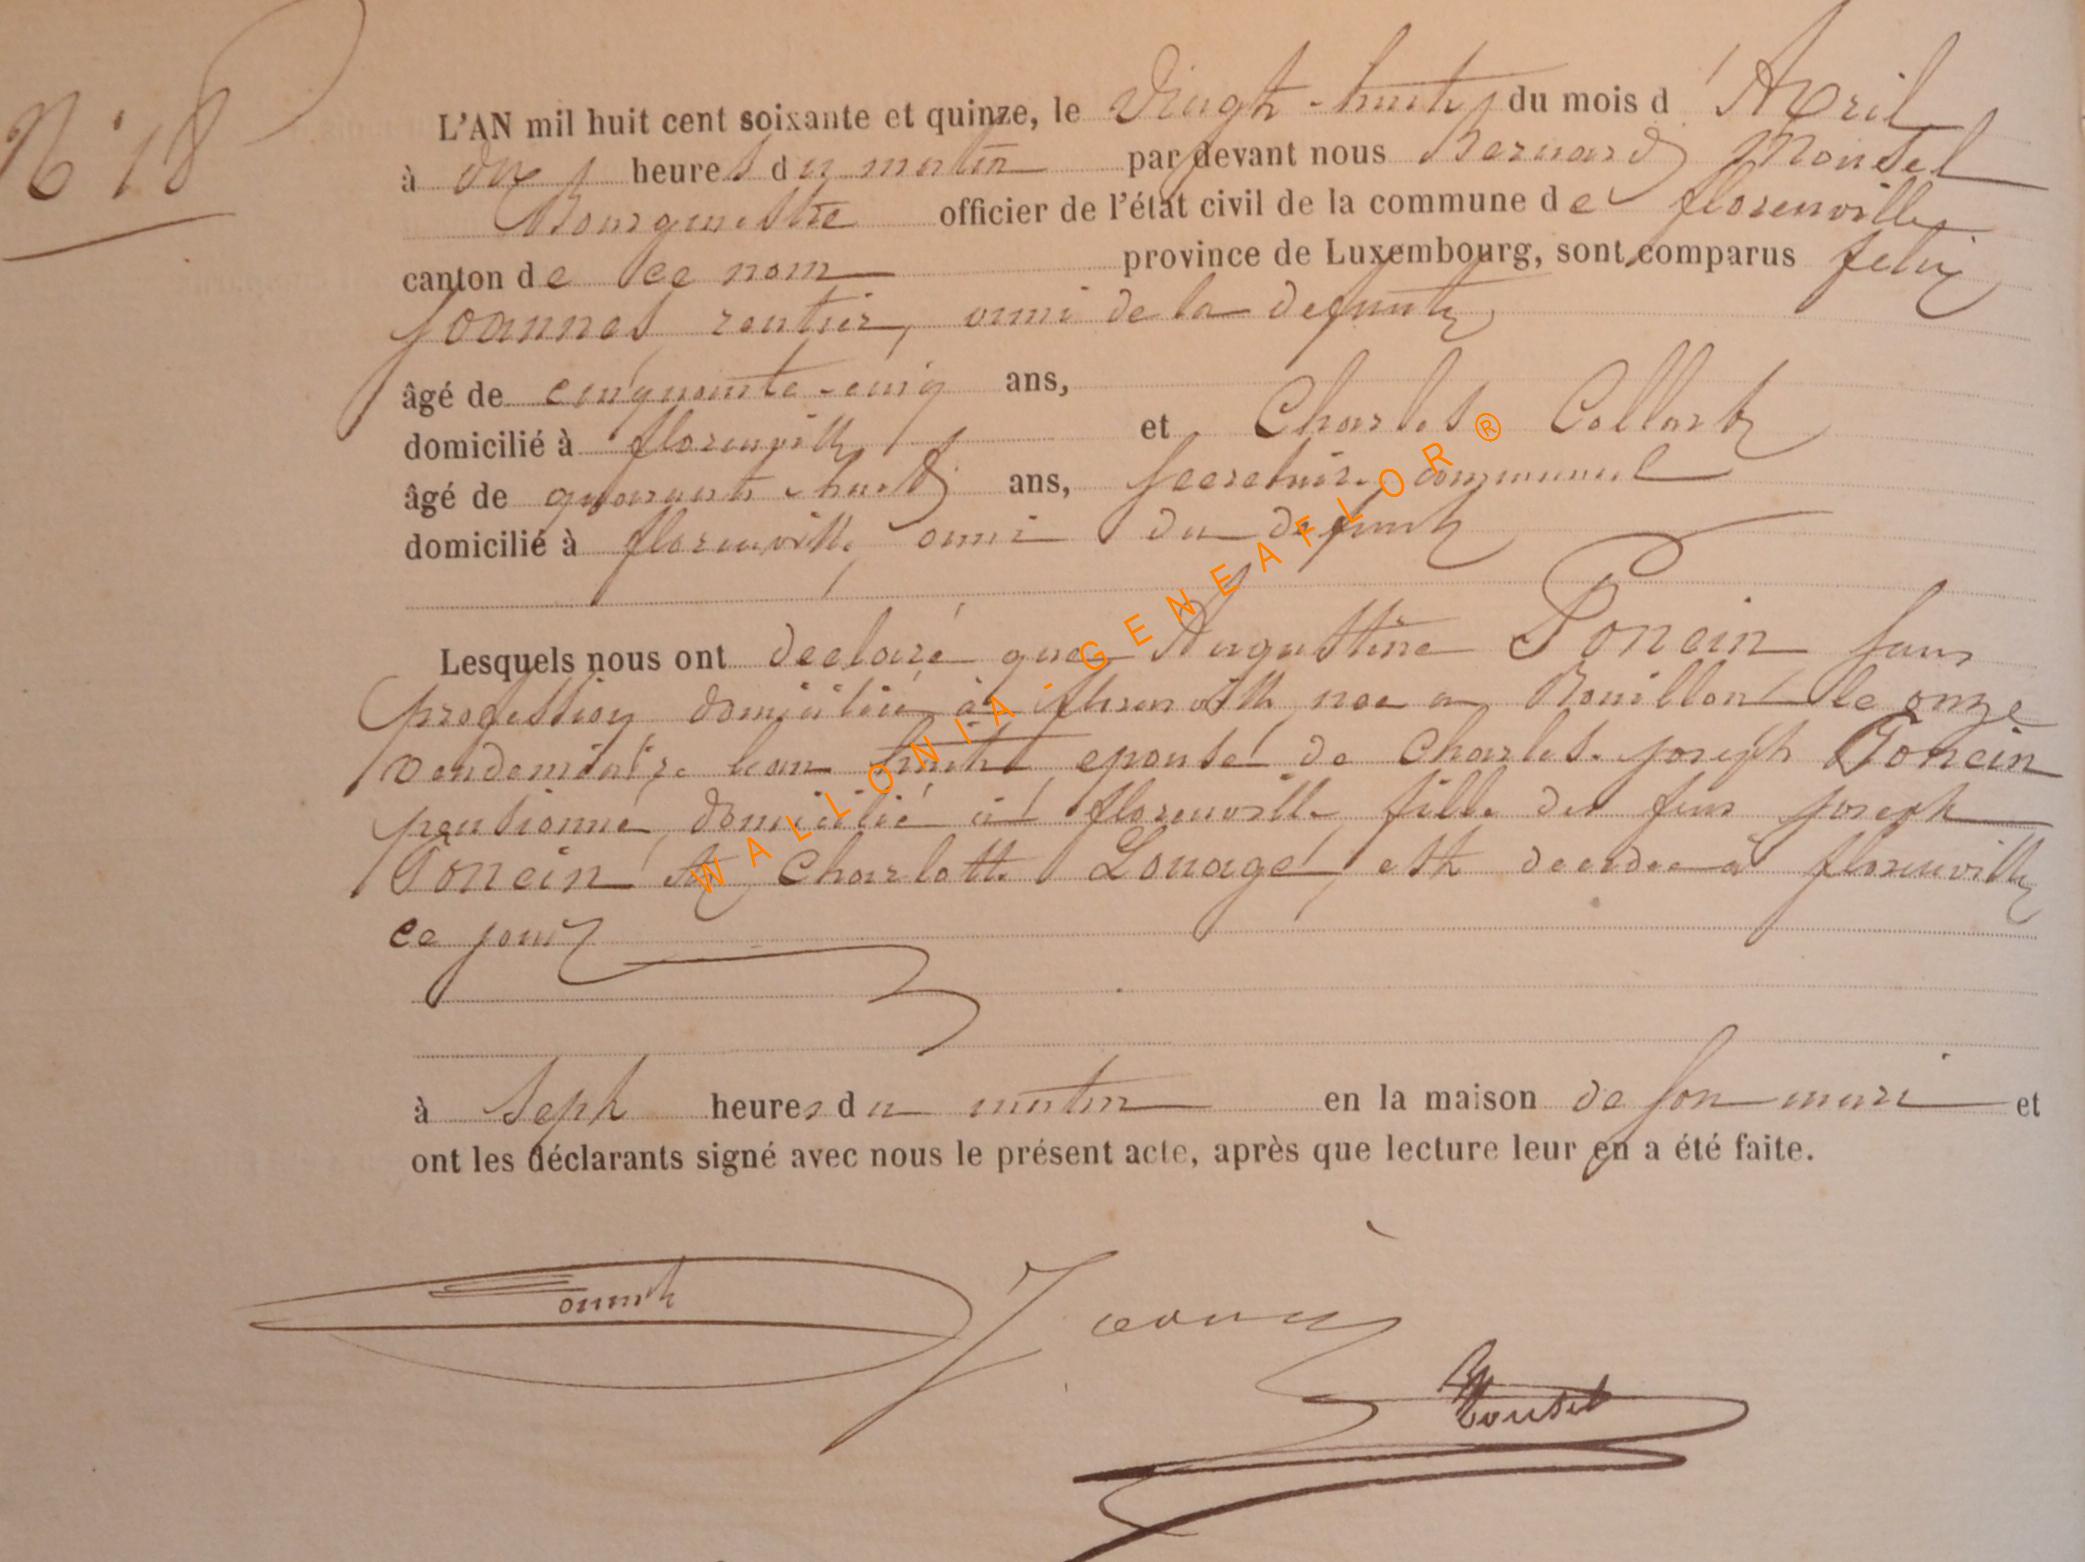 N° 18
L'AN mil huit cent soixante et quinze, le Vingt-huit du mois d'Avril
à dix heures du matin par devant nous Bernard Mousel
Bourgmestre officier de l'état civil de la commune de florenville
canton de ce nom province de Luxembourg, sont comparus felix
Joannes rentier, ami de la defunte
âgé de cinquante-cinq ans,
domicilié à florenville et Charles Collart
âgé de quarante-huit ans, Secretaire communal
domicilié à florenville ami du defunt
Lesquels nous ont declaré que Augustine Poncin Sans
profession domiciliée à florenville née a Bouillon le onze
vendemiaire l'an huit epouse de Charles-Joseph Poncin
pensionné domicilié à florenville fille des feus Joseph
Poncin et Charlotte Louage, est decedee a florenville
ce jour
à Sept heures du matin en la maison de Son mari et
ont les déclarants signé avec nous le présent acte, après que lecture leur en a été faite.
Mousel
WALLONIA - GENEAFLOR®